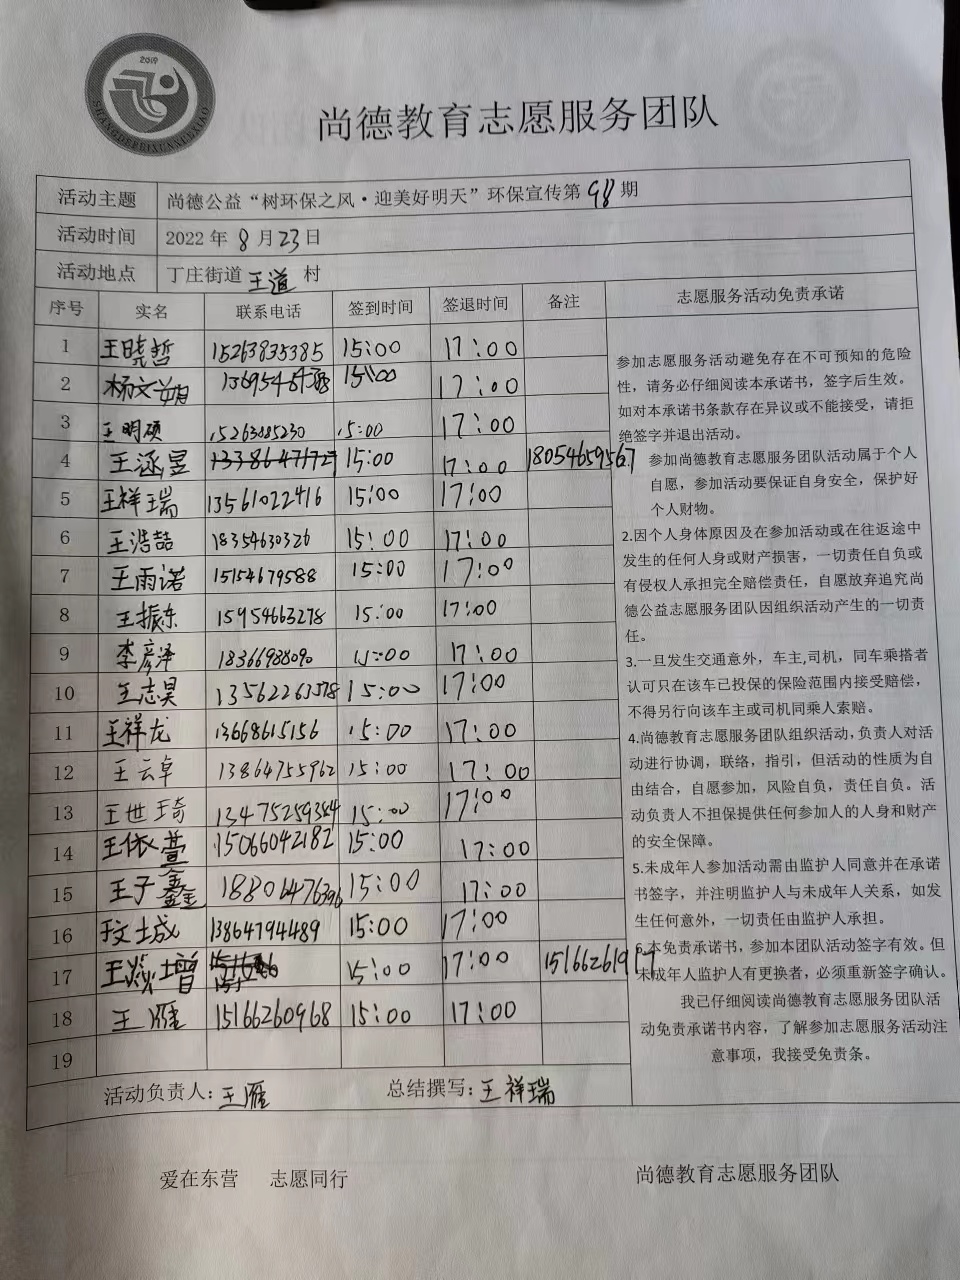 2019
尚德教育志愿服务团队
活动主题 尚德公益“树环保之风·迎美好明天”环保宣传第98期
活动时间 2022年8月23日
活动地点 丁庄街道王道村
序号 实名 联系电话 签到时间 签退时间 备注 志愿服务活动免责承诺
1 王晓哲 15263835385 15:00 17:00
2 杨文 15:00 17:00
3 王明硕 15:00 17:00
4 王涵昱 13386471727 15:00 17:00 18054659567
5 王祥瑞 13561022416 15:00 17:00
6 王浩喆 18354630326 15:00 17:00
7 王雨诺 15154679588 15:00 17:00
8 王振东 15954663278 15:00 17:00
9 李彦泽 18366988090 15:00 17:00
10 王志昊 13562263578 15:00 17:00
11 王祥龙 13668615156 15:00 17:00
12 王云卓 13864755962 15:00 17:00
13 王世琦 13475259384 15:00 17:00
14 王依萱 15066042182 15:00 17:00
15 王子鑫 18801476396 15:00 17:00
16 13864794489 15:00 17:00
17 王 增 15:00 17:00
18 王雁 15166260968 15:00 17:00
19
参加志愿服务活动避免存在不可预知的危险
性，请务必仔细阅读本承诺书，签字后生效。
如对本承诺书条款存在异议或不能接受，请拒
绝签字并退出活动。
参加尚德教育志愿服务团队活动属于个人
自愿，参加活动要保证自身安全，保护好
个人财物。
2.因个人身体原因及在参加活动或在往返途中
发生的任何人身或财产损害，一切责任自负或
有侵权人承担完全赔偿责任，自愿放弃追究尚
德公益志愿服务团队因组织活动产生的一切责
任。
3.一旦发生交通意外，车主,司机，同车乘搭者
认可只在该车已投保的保险范围内接受赔偿，
不得另行向该车主或司机同乘人索赔。
4.尚德教育志愿服务团队组织活动,负责人对活
动进行协调，联络，指引，但活动的性质为自
由结合，自愿参加，风险自负，责任自负。活
动负责人不担保提供任何参加人的人身和财产
的安全保障。
5.未成年人参加活动需由监护人同意并在承诺
书签字，并注明监护人与未成年人关系，如发
生任何意外，一切责任由监护人承担。
6.本免责承诺书，参加本团队活动签字有效。但
未成年人监护人有更换者，必须重新签字确认。
我已仔细阅读尚德教育志愿服务团队活
动免责承诺书内容，了解参加志愿服务活动注
意事项，我接受免责条。
活动负责人：王雁 总结撰写：王祥瑞
爱在东营 志愿同行 尚德教育志愿服务团队